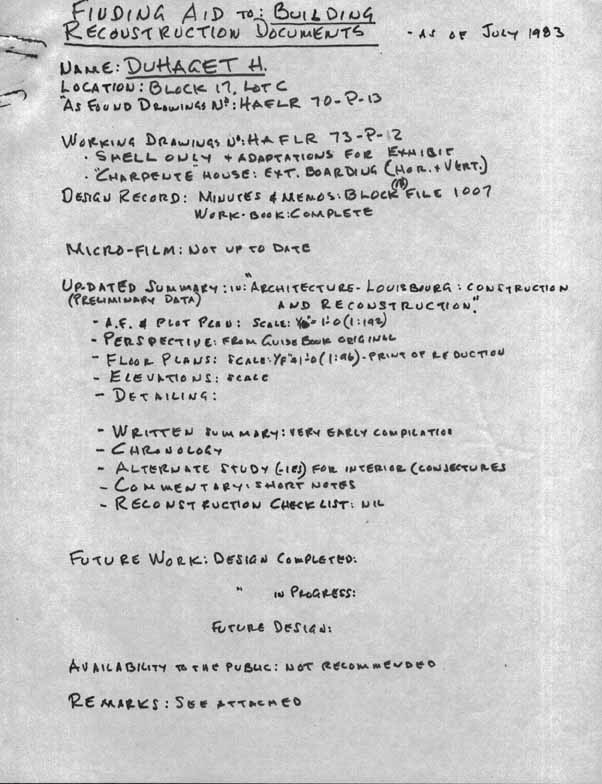 FINDING AID TO: BUILDING
RECONSTRUCTION DOCUMENTS - AS OF JULY 1983
NAME: DUHAGET H.
LOCATION: BLOCK 17, LOT C
"AS FOUND DRAWINGS Nº: HAFLR 70-P-13
WORKING DRAWINGS Nº: HAFLR 73-P-12
· SHELL ONLY + ADAPTATIONS FOR EXHIBIT
· "CHARPENTE" HOUSE: EXT. BOARDING (HOR. + VERT.)
DESIGN RECORD: MINUTES & MEMOS: BLOCK FILE 1007
WORK-BOOK: COMPLETE
MICRO-FILM: NOT UP TO DATE
UPDATED SUMMARY: IN: "ARCHITECTURE - LOUISBOURG: CONSTRUCTION
(PRELIMINARY DATA) AND RECONSTRUCTION."
- A.F. & PLOT PLAN: SCALE: 1:0 (1:192)
- PERSPECTIVE: FROM GUIDE BOOK ORIGINAL
- FLOOR PLANS: SCALE: 1:0 (1:96) - PRINT OF REDUCTION
- ELEVATIONS: SCALE
- DETAILING:
- WRITTEN SUMMARY: VERY EARLY COMPILATION
- CHRONOLOGY
- ALTERNATE STUDY (-IES) FOR INTERIOR (CONJECTURES
- COMMENTARY: SHORT NOTES
- RECONSTRUCTION CHECKLIST: NIL
FUTURE WORK: DESIGN COMPLETED:
" IN PROGRESS:
FUTURE DESIGN:
AVAILABILITY TO THE PUBLIC: NOT RECOMMENDED
REMARKS: SEE ATTACHED